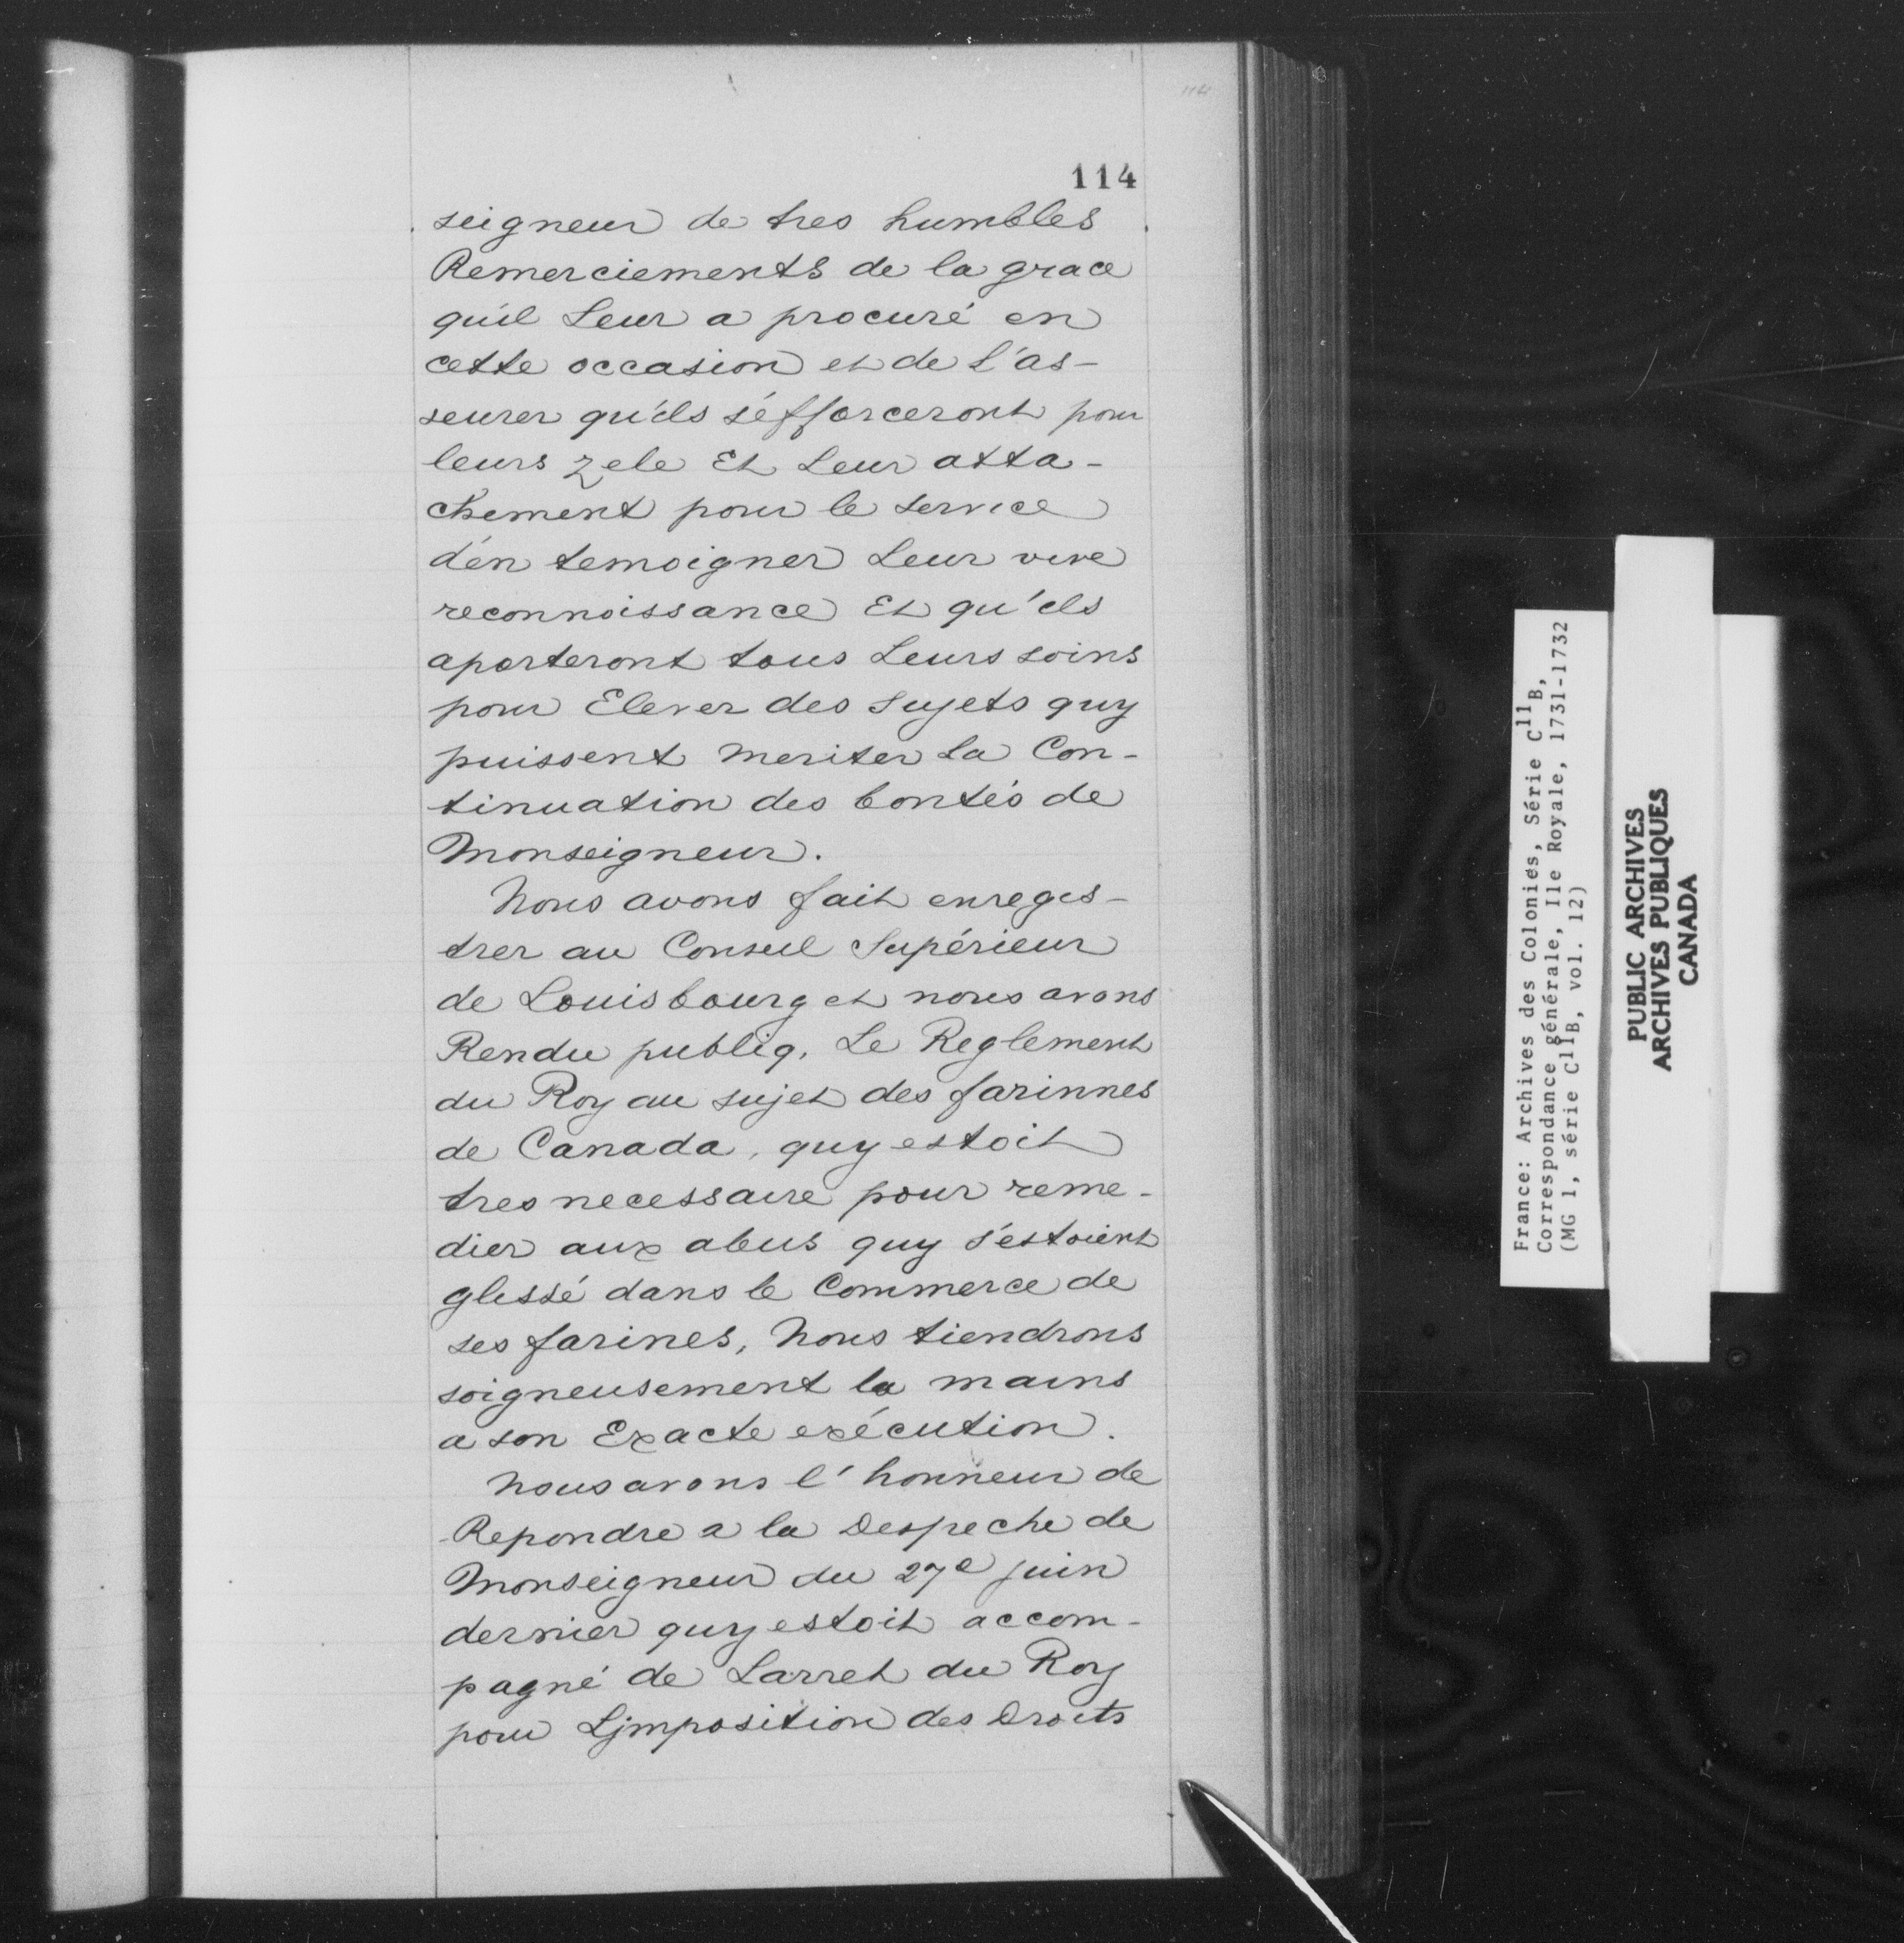 114
114
seigneur de tres humbles
Remerciements de la grace
qu'il Leur a procuré en
cette occasion et de L'as-
seurer qu'ils s'éfforceront pour
leurs zele Et Leur atta-
chement pour le service
d'en temoigner Leur vive
reconnoissance Et qu'ils
aporteront tous Leurs soins
pour Elever des sujets quy
puissent meriter La Con-
tinuation des bontés de
Monseigneur.
Nous avons fait enregis-
trer au Conseil Supérieur
de Louisbourg et nous avons
Rendu publiq. Le Reglement
du Roy au sujet des farinnes
de Canada, quy estoit
tres necessaire pour reme-
dier aux abus quy s'estoient
glissé dans le Commerce de
ses farines, Nous tiendrons
soigneusement la mains
a son Exacte exécution.
Nous avons l'honneur de
Repondre a la Despeche de
Monseigneur du 27e juin
dernier quy estoit accom-
pagné de Larret du Roy
pour Ljmposition des Droits
France: Archives des Colonies, Série C11B,
Correspondance générale, Ile Royale, 1731-1732
(MG 1, série C11B, vol. 12)
PUBLIC ARCHIVES
ARCHIVES PUBLIQUES
CANADA